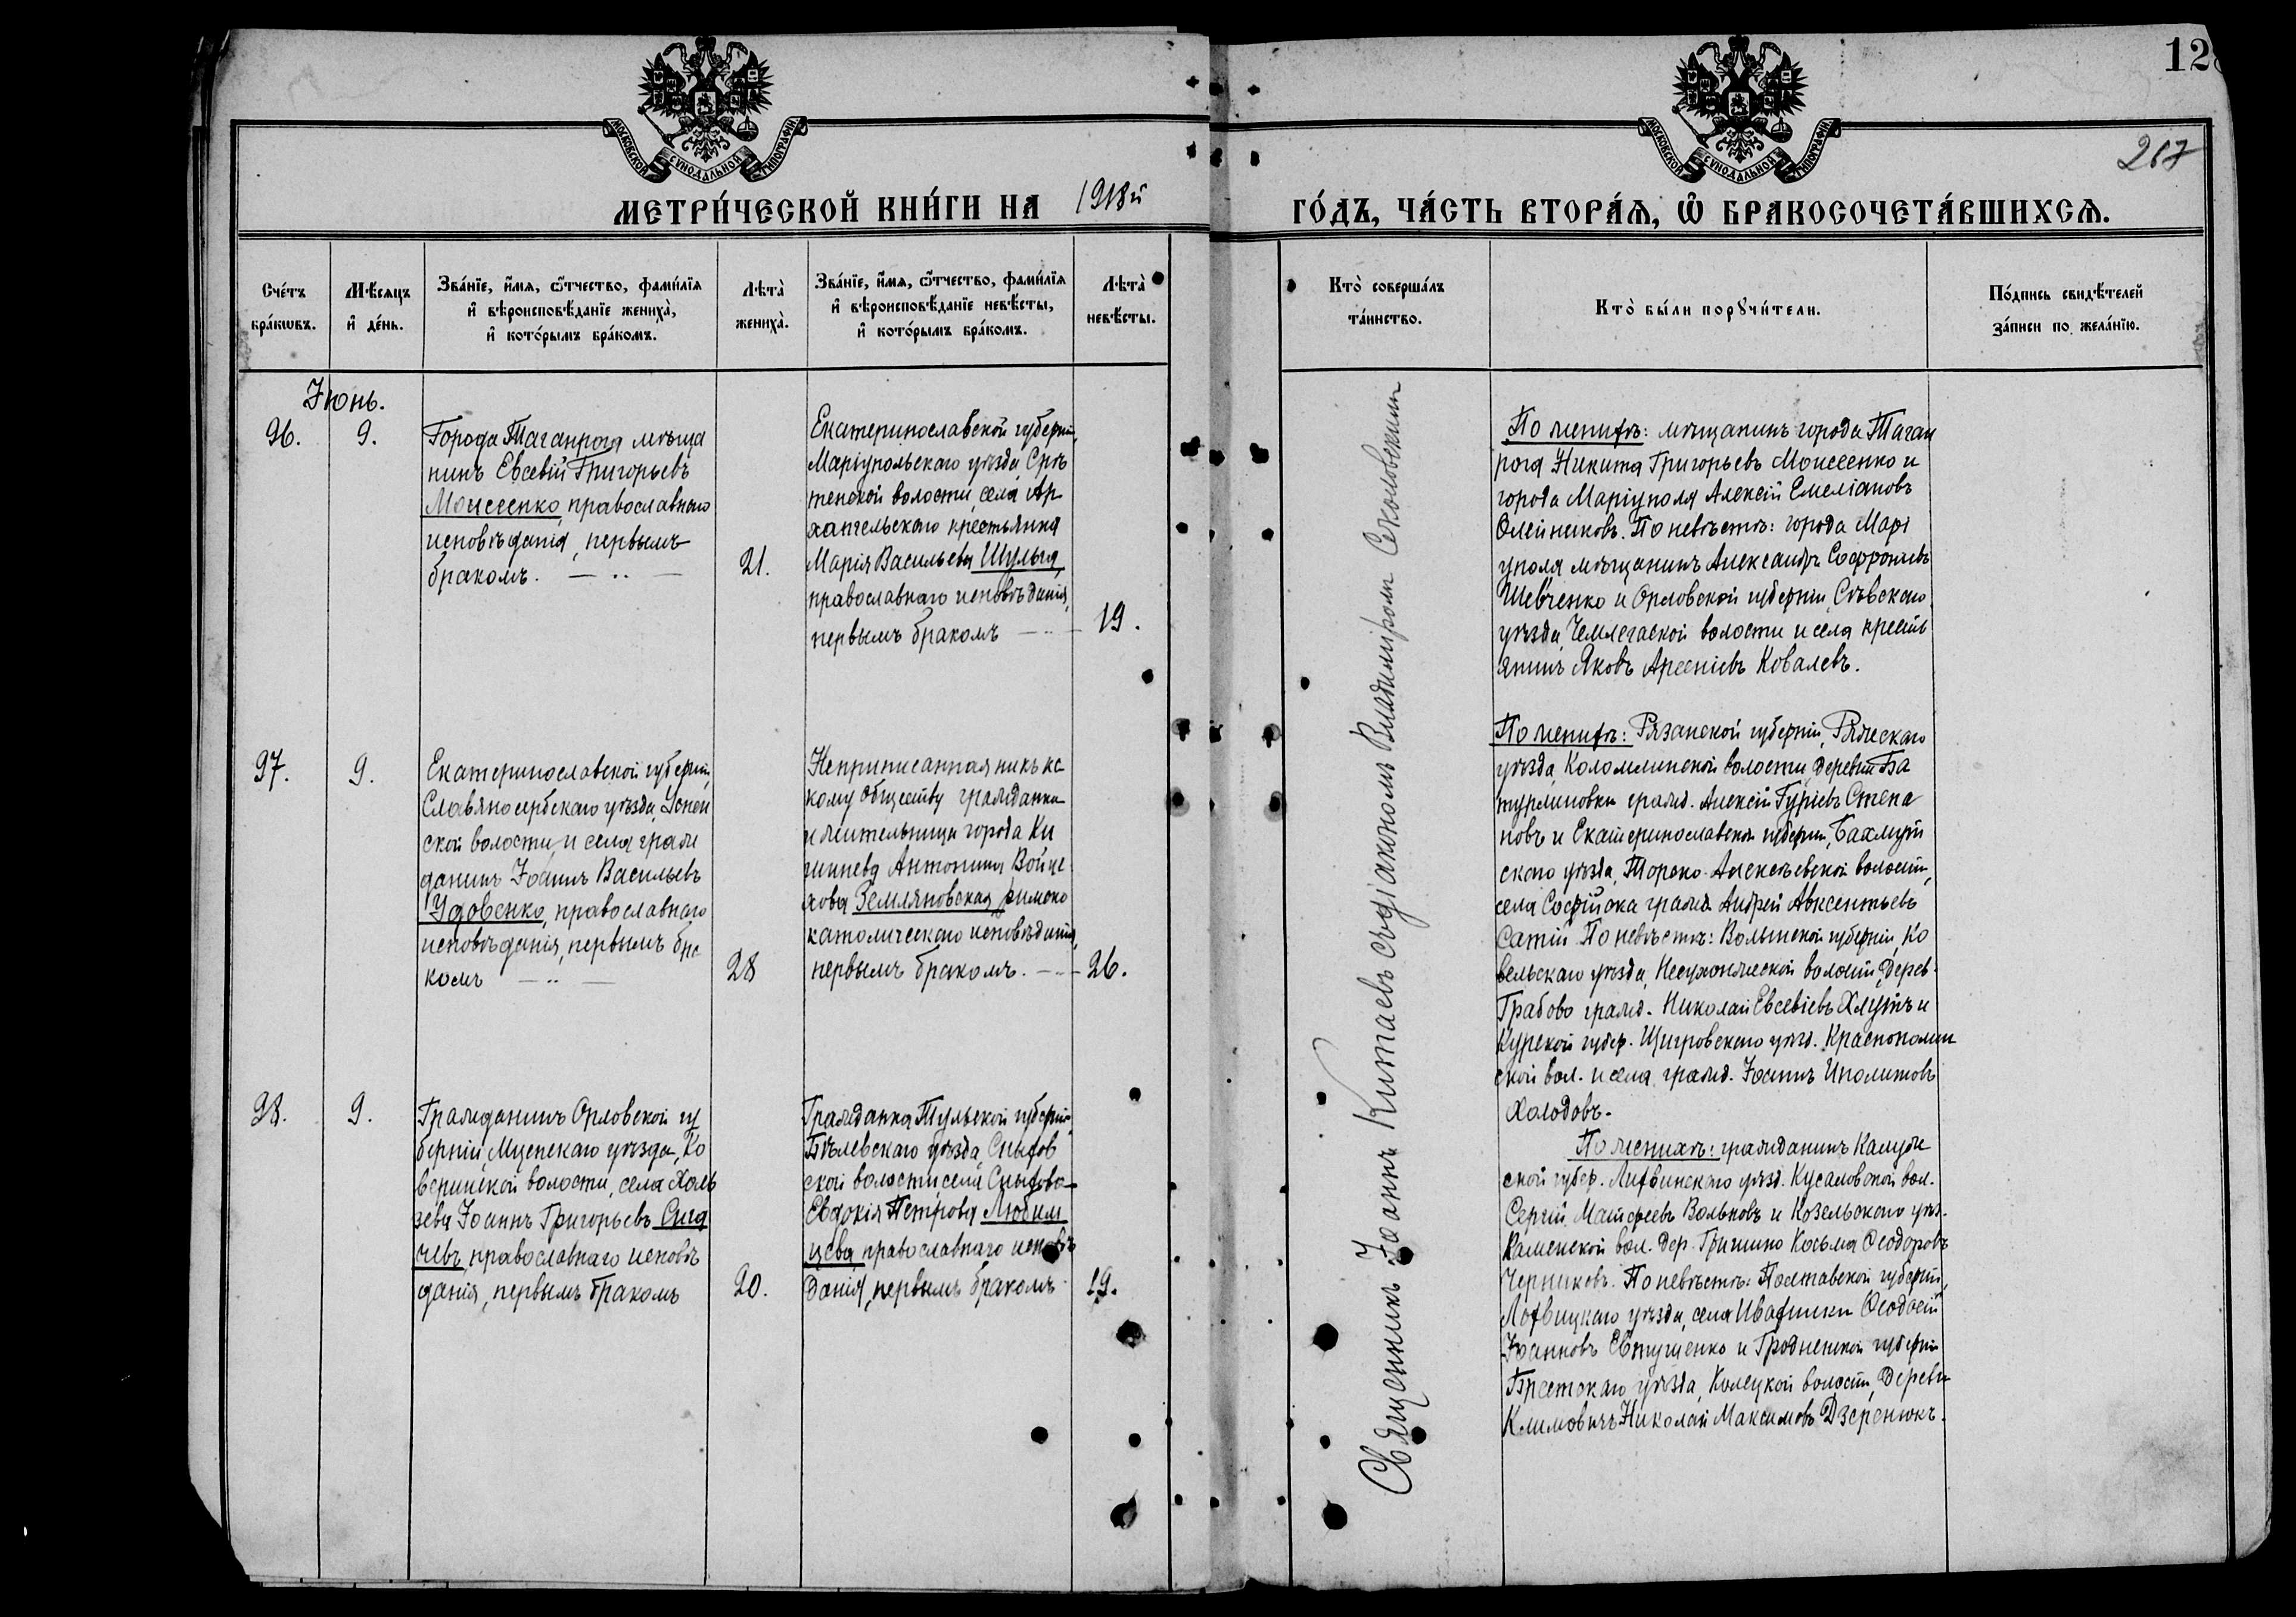 МОСКОВСКОЙ СУНОДАЛЬНОЙ ТИПОГРАФІИ
МЕТРИ́ЧЕСКОЙ КНИ́ГИ НА 1918й
Сче́тъ бра́кωвъ.
Мѣ́сяцъ и҆ де́нь.
Зва́нїе, и҆́мѧ, ѻ҆́тчество, фами́лїѧ
и҆ вѣроисповѣ́данїе жениха̀,
и҆ кото́рымъ бра́комъ.
Лѣта̀ жениха̀.
Зва́нїе, и҆́мѧ, ѻ҆́тчество, фами́лїѧ
и҆ вѣроисповѣ́данїе невѣ́сты,
и҆ кото́рымъ бра́комъ.
Лѣта̀ невѣ́сты.
Іюнь.
96.
9.
Города Таганрога мѣща
нинъ Евсевій Григорьевъ
Моисеенко, православнаго
исповѣданія, первымъ
бракомъ.
21.
Екатеринославской губерніи,
Маріупольскаго уѣзда, Срѣ
тенской волости, села Ар
хангельскаго крестьянка
Марія Васильева Шульга,
православнаго исповѣданія,
первымъ бракомъ
19.
97.
9.
Екатеринославской губерніи,
Славяносербскаго уѣзда, Успен
ской волости и села граж
данинъ Іоаннъ Васильевъ
Удовенко, православнаго
исповѣданія, первымъ бра
комъ
28
Неприписанная никъ ка
кому обществу гражданка
и жительница города Ки
шинева Антонина Войце
хова Земляновская, римско
католическаго исповѣданія,
первымъ бракомъ.
26.
98.
9.
Гражданинъ Орловской гу
берніи, Мценскаго уѣзда, Ко
веринской волости, села Холь
зева Іоаннъ Григорьевъ Сига
чевъ, православнаго исповѣ
данія, первымъ бракомъ
20.
Гражданка Тульской губерніи,
Бѣлевскаго уѣзда, Сныхов
ской волости, села Сныхова
Евдокія Петрова Любим
цева, православнаго исповѣ
данія, первымъ бракомъ
19.
128
267
МОСКОВСКОЙ СУНОДАЛЬНОЙ ТИПОГРАФІИ
ГО́ДЪ, ЧА́СТЬ ВТОРА́Ѧ, Ѽ БРАКОСОЧЕТА́ВШИХСѦ.
Кто̀ соверша́лъ
та́инство.
Кто̀ бы́ли порꙋчи́тели.
По́дпись свидѣ́телей
за́писи по жела́нїю.
Священникъ Іоаннъ Китаевъ съ діакономъ Владиміромъ Соколовскимъ
По женихѣ: мѣщанинъ города Таган
рога Никита Григорьевъ Моисеенко и
города Маріуполя Алексій Емеліановъ
Олейниковъ. По невѣстѣ: города Марі
уполя мѣщанинъ Александръ Софроніевъ
Шевченко и Орловской губерніи, Сѣвскаго
уѣзда, волости и села кресть
янинъ Яковъ Арсеніевъ Ковалевъ.
По женихѣ: Рязанской губерніи, Ряжскаго
уѣзда, волости, деревни Ба
турлиновки гражд. Алексій Гуріевъ Степа
новъ и Екатеринославской губерніи, Бахмут
скаго уѣзда, Торско-Алексѣевской волости,
села Софійска гражд. Андрей Авксентьевъ
Сатій. По невѣстѣ: Волынской губерніи, Ко
вельскаго уѣзда, Несухоижской волости, дерев.
Грабово гражд. Николай Евсевіевъ Хлутъ и
Курской губер. Щигровскаго уѣзд. Краснополян
ской вол. и села гражд. Іоаннъ Иполитовъ
Холодовъ.
По женихѣ: гражданинъ Калуж
ской губер. Лихвинскаго уѣзд. вол.
Сергій Матфеевъ Волковъ и Козельскаго уѣз.
Каменской вол. дер. Гришино Косьма Ѳеодоровъ
Черниковъ. По невѣстѣ: Полтавской губерніи,
Лохвицкаго уѣзда, села Ивахники Ѳеодосій
Іоанновъ Евтушенко и Гродненской губерніи
Брестскаго уѣзда, волости, деревни
Климовичъ Николай Максимовъ Дзеренюкъ.